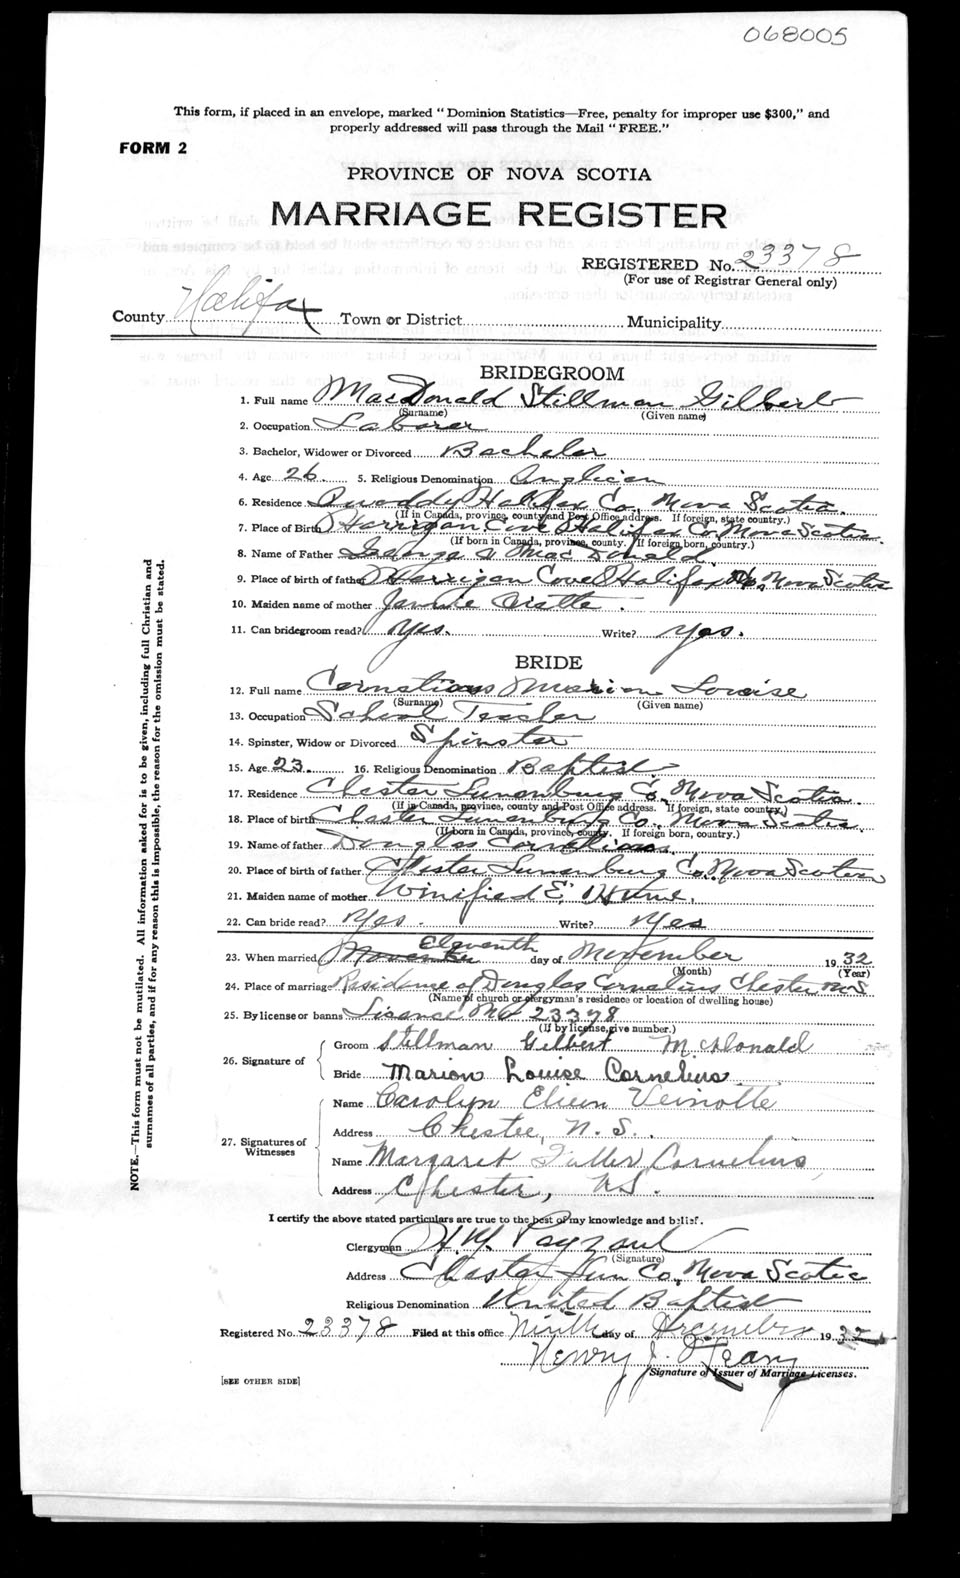 068005
This form, if placed in an envelope, marked "Dominion Statistics—Free, penalty for improper use $300," and
properly addressed will pass through the Mail "FREE."
FORM 2
PROVINCE OF NOVA SCOTIA
MARRIAGE REGISTER
REGISTERED No. 23378
(For use of Registrar General only)
County Halifax Town or District Municipality
BRIDEGROOM
1. Full name MacDonald Stillman Gilbert
(Surname) (Given name)
2. Occupation Laborer
3. Bachelor, Widower or Divorced Bachelor
4. Age 26 5. Religious Denomination Anglican
6. Residence Quoddy Halifax Co., Nova Scotia.
(If in Canada, province, county and Post Office address. If foreign, state country.)
7. Place of Birth Harrigan Cove Halifax Co. Nova Scotia.
(If born in Canada, province, county. If foreign born, country.)
8. Name of Father George Mac Donald
9. Place of birth of father Harrigan Cove Halifax Co. Nova Scotia
10. Maiden name of mother
11. Can bridegroom read? Yes. Write? Yes.
BRIDE
12. Full name Cornelius Marion Louise
(Surname) (Given name)
13. Occupation School Teacher
14. Spinster, Widow or Divorced Spinster
15. Age 23. 16. Religious Denomination Baptist.
17. Residence Chester Lunenburg Co., Nova Scotia.
(If in Canada, province, county and Post Office address. If foreign, state country.)
18. Place of birth Chester Lunenburg Co., Nova Scotia.
(If born in Canada, province, county. If foreign born, country.)
19. Name of father Douglas Cornelius.
20. Place of birth of father Chester Lunenburg Co. Nova Scotia
21. Maiden name of mother Winified E.
22. Can bride read? Yes. Write? Yes
23. When married November Eleventh day of November 1932
(Month) (Year)
24. Place of marriage Residence of Douglas Cornelius Chester N.S
(Name of church or clergyman's residence or location of dwelling house)
25. By license or banns Lisence No 23378
(If by license, give number.)
26. Signature of
Groom Stillman Gilbert McDonald
Bride Marion Louise Cornelius
27. Signatures of Witnesses
Name Carolyn Eileen Veinotte
Address Chester, N. S.
Name Margaret Fuller Cornelius
Address Chester, N.S.
I certify the above stated particulars are true to the best of my knowledge and belief.
Clergyman
(Signature)
Address Chester Lun Co., Nova Scotia
Religious Denomination United Baptist
Registered No. 23378 Filed at this office Ninth day of 1932
Henry J.
Signature of Issuer of Marriage Licenses.
[SEE OTHER SIDE]
NOTE.—This form must not be mutilated. All information asked for is to be given, including full Christian and
surnames of all parties, and if for any reason this is impossible, the reason for the omission must be stated.